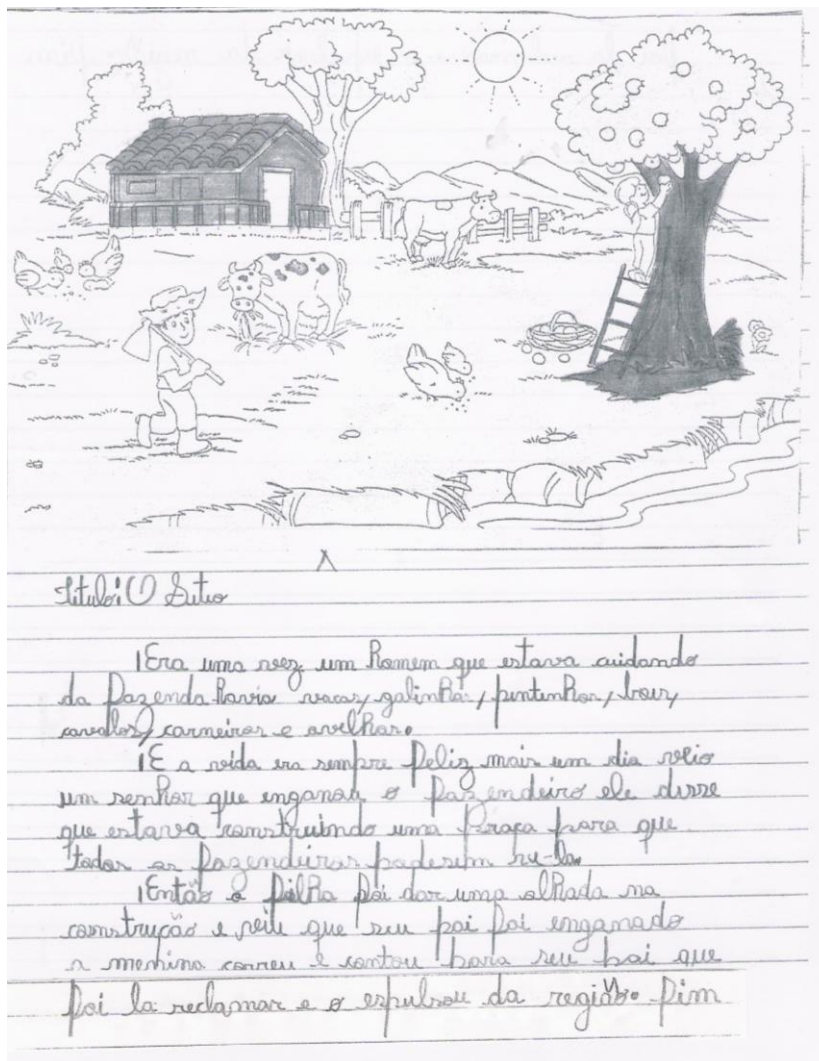 Titulo: O Sitio
Era uma vez um homem que estava cuidando
da fazenda havia vacas, galinha, pintinhos, bois,
cavalos, carneiros e ovelhas.
E a vida era sempre feliz mais um dia veio
um senhor que enganou o fazendeiro ele disse
que estava construindo uma praça para que
todos os fazendeiros podesem
Então o filha foi dar uma olhada na
construção e viu que seu pai foi enganado
a menina correu e contou para seu pai que
foi la reclamar e o espulsou da região. Fim